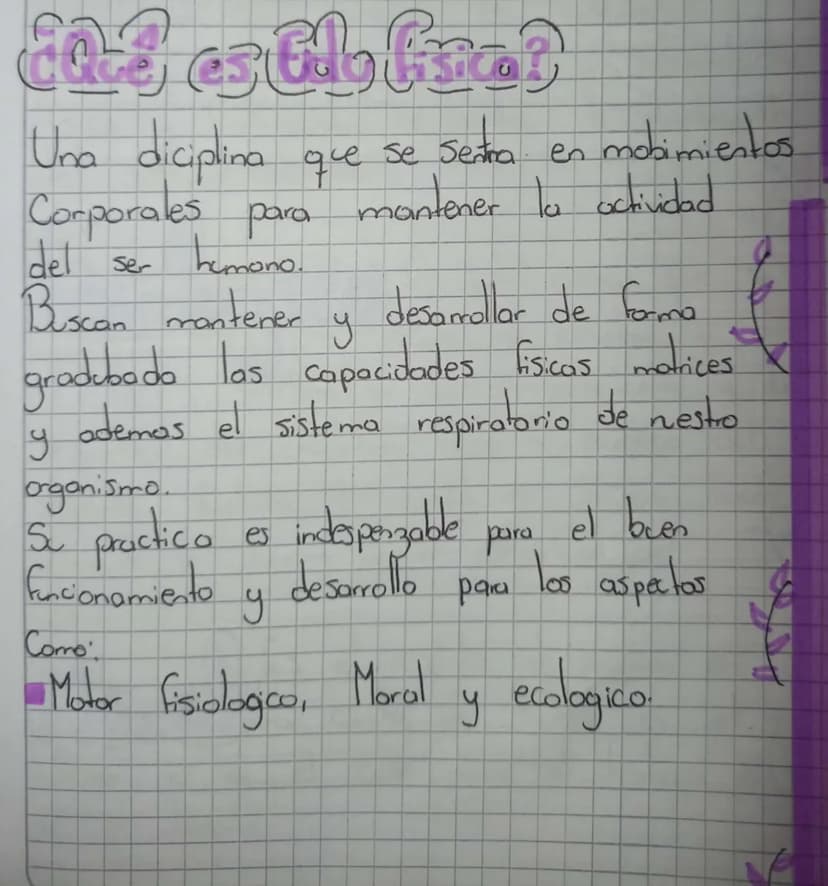 ¿Qué es Edu física?
Una diciplina que se sentra en mobimientos
Corporales para mantener la actividad
del ser humano.
Buscan mantener y desarrollar de forma
gradubada las capacidades fisicas motrices
y ademas el sistema respiratorio de nestro
organismo.
Su practica es indespenzable para el buen
funcionamiento y desarrollo para los aspectos
Como:
Motor fisiologico, Moral y ecologico.